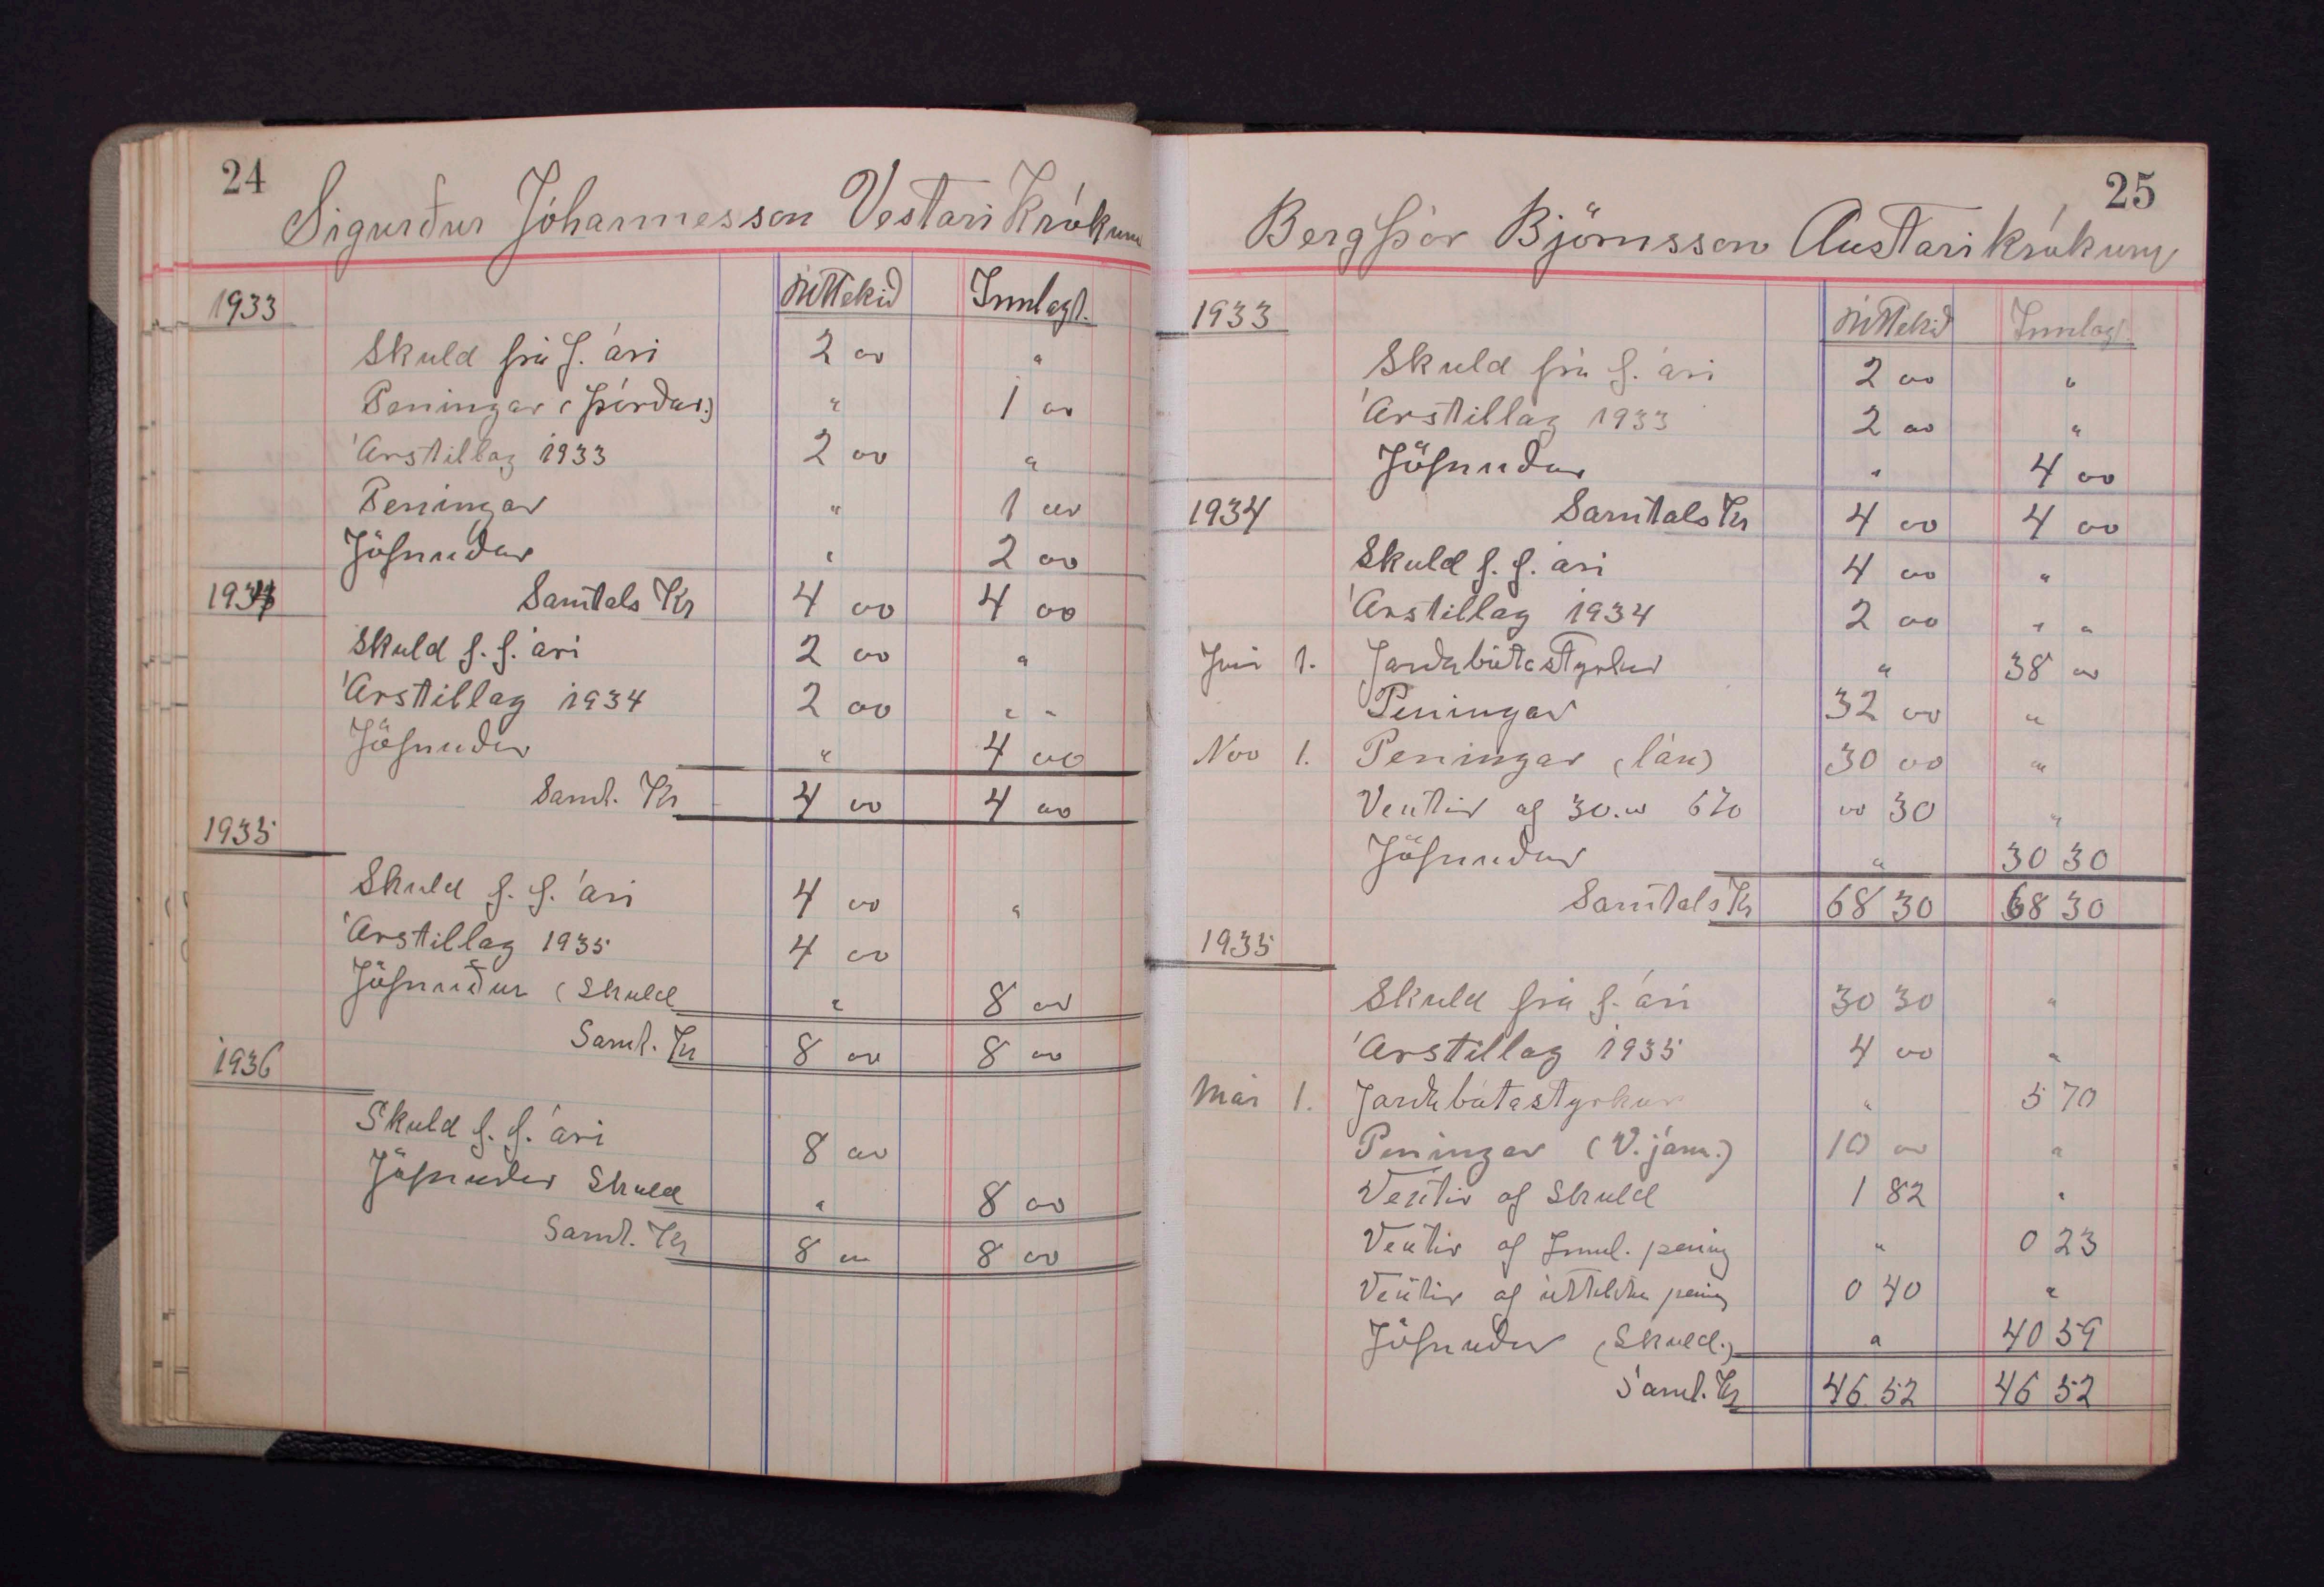 24
Sigurður Jóhannesson Vestari Krókum
1933 Úttekið Innlagt.
Skuld frá f. ári 2 00 "
Peningar (Þórður) " 1 00
Árstillag 1933 2 00 "
Peningar " 1 00
Jöfnuður " 2 00
1934 Samtals Kr 4 00 4 00
Skuld f. f. ári 2 00 "
Árstillag 1934 2 00 " "
Jöfnuður " 4 00
Samt. Kr 4 00 4 00
1935
Skuld f. f. ári 4 00 "
Árstillag 1935 4 00
Jöfnuður (Skuld " 8 00
Samt. Kr 8 00 8 00
1936
Skuld f. f. ári 8 00
Jöfnuður Skuld " 8 00
Samt. Kr 8 00 8 00
25
Bergþór Björnsson Austari krókum
1933 Úttekið Innlagt
Skuld frá f. ári 2 00 "
Árstillag 1933 2 00 "
Jöfnuður " 4 00
1934 Samtals Kr 4 00 4 00
Skuld f. f. ári 4 00 "
Árstillag 1934 2 00 " "
Júní 1. Jarðabótastyrkur " 38 00
Peningar 32 00 "
Nóv 1. Peningar (lán) 30 00 "
Vextir af 30.00 6% 00 30 "
Jöfnuður " 30 30
Samtals Kr 68 30 68 30
1935
Skuld frá f. ári 30 30 "
Árstillag 1935 4 00 "
Mar 1. Jarðabótastyrkur " 5 70
Peningar (V. járn.) 10 00 "
Vextir af Skuld 1 82 "
Vextir af Innl. pening " 0 23
Vextir af útteknu pening 0 40 "
Jöfnuður (Skuld.) " 40 59
Samt. Kr 46.52 46 52